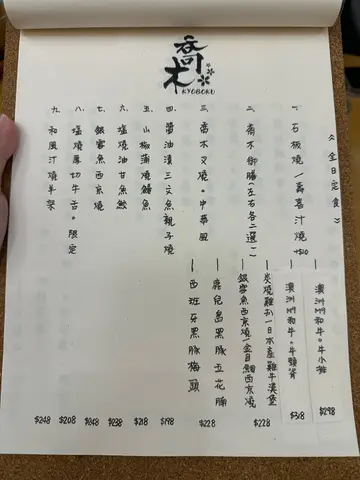 喬木
KYOBOKU
《全日定食》
一、石板燒/壽喜汁燒 +$10
澳洲M5和牛。牛小排 $298
澳洲M5和牛。牛頸脊 $348
二、喬木御膳(左右各二選一)
炭燒雞扒—日本產雞牛漢堡
銀雪魚西京燒/金目鯛西京燒 $228
三、喬木叉燒。中華風
鹿兒島黑豚五花腩
西班牙黑豚梅頭 $228
四、醬油漬三文魚親子燒 $198
五、山椒蒲燒鰻魚 $218
六、塩燒油甘魚鮫 $238
七、銀雪魚西京燒 $248
八、塩燒厚切牛舌。限定 $208
九、和風汁燒羊架 $248